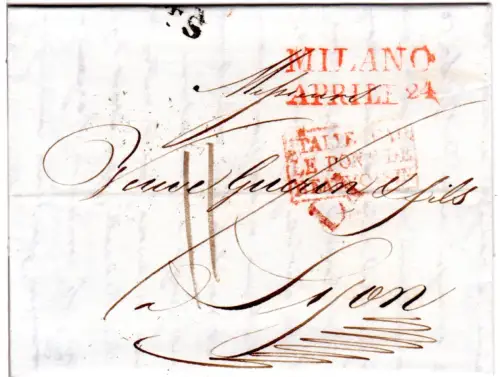 MILANO
APRILE 24
Messieurs
ITALIE PAR
LE PONT DE
Veuve Guerin & fils
11
a Lyon